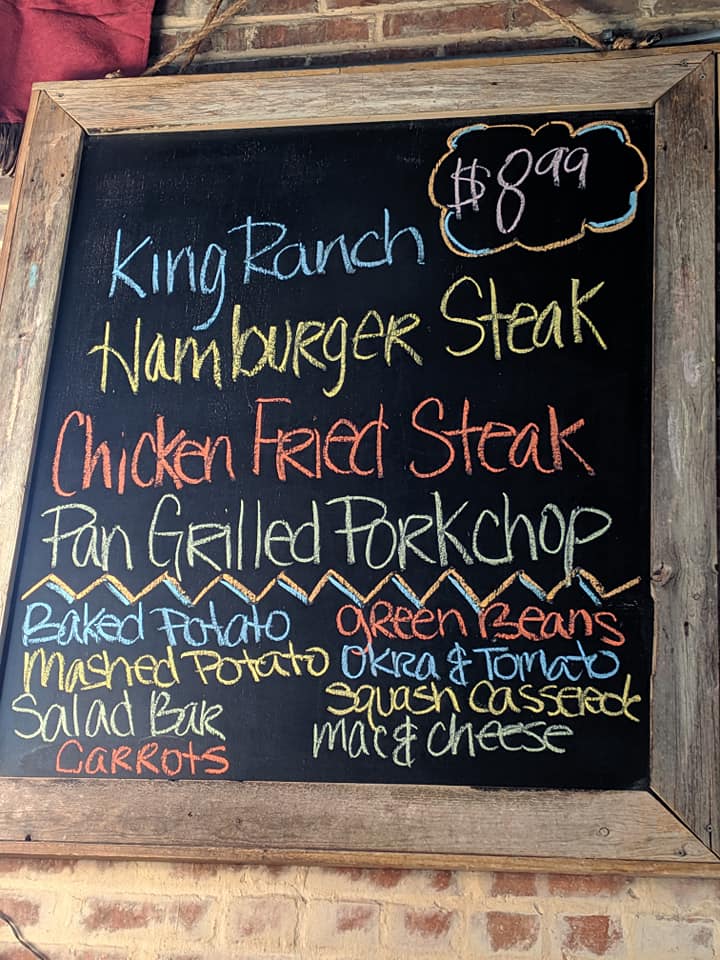 $8.99
King Ranch
Hamburger Steak
Chicken Fried Steak
Pan Grilled Porkchop
Baked Potato
Mashed Potato
Salad Bar
Carrots
green Beans
Okra & Tomato
Squash Casserole
mac & cheese